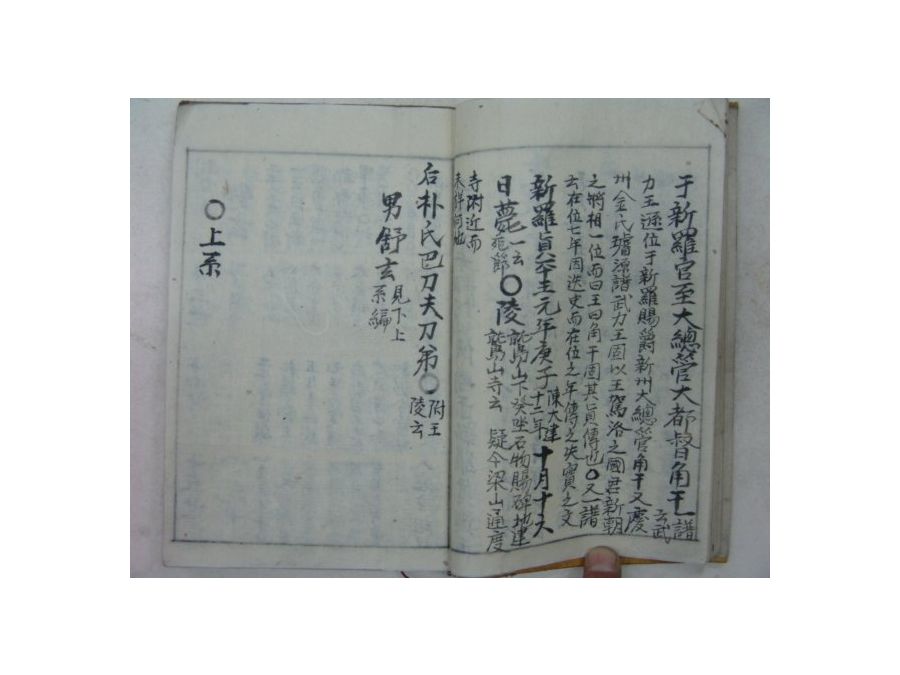 于新羅官至大總管大都督角干一譜
云武
力王遜位于新羅賜爵新州大總管角干又慶
州金氏璿源譜武力王固以王駕洛之國君新朝
之將相一位而曰王曰角干固其眞傳也〇又一譜
云在位七年因迭史而在位之年傳之失實之文
新羅眞 元年庚子陳大建
十二年十月十六
日薨一云
〇陵鷲山下癸坐石物賜碑地建
鷲山寺云 疑今梁山通度
寺附近而
未詳何也
后朴氏巴刀夫刀弟〇附王
陵云
男舒玄見下上
系編
〇上系